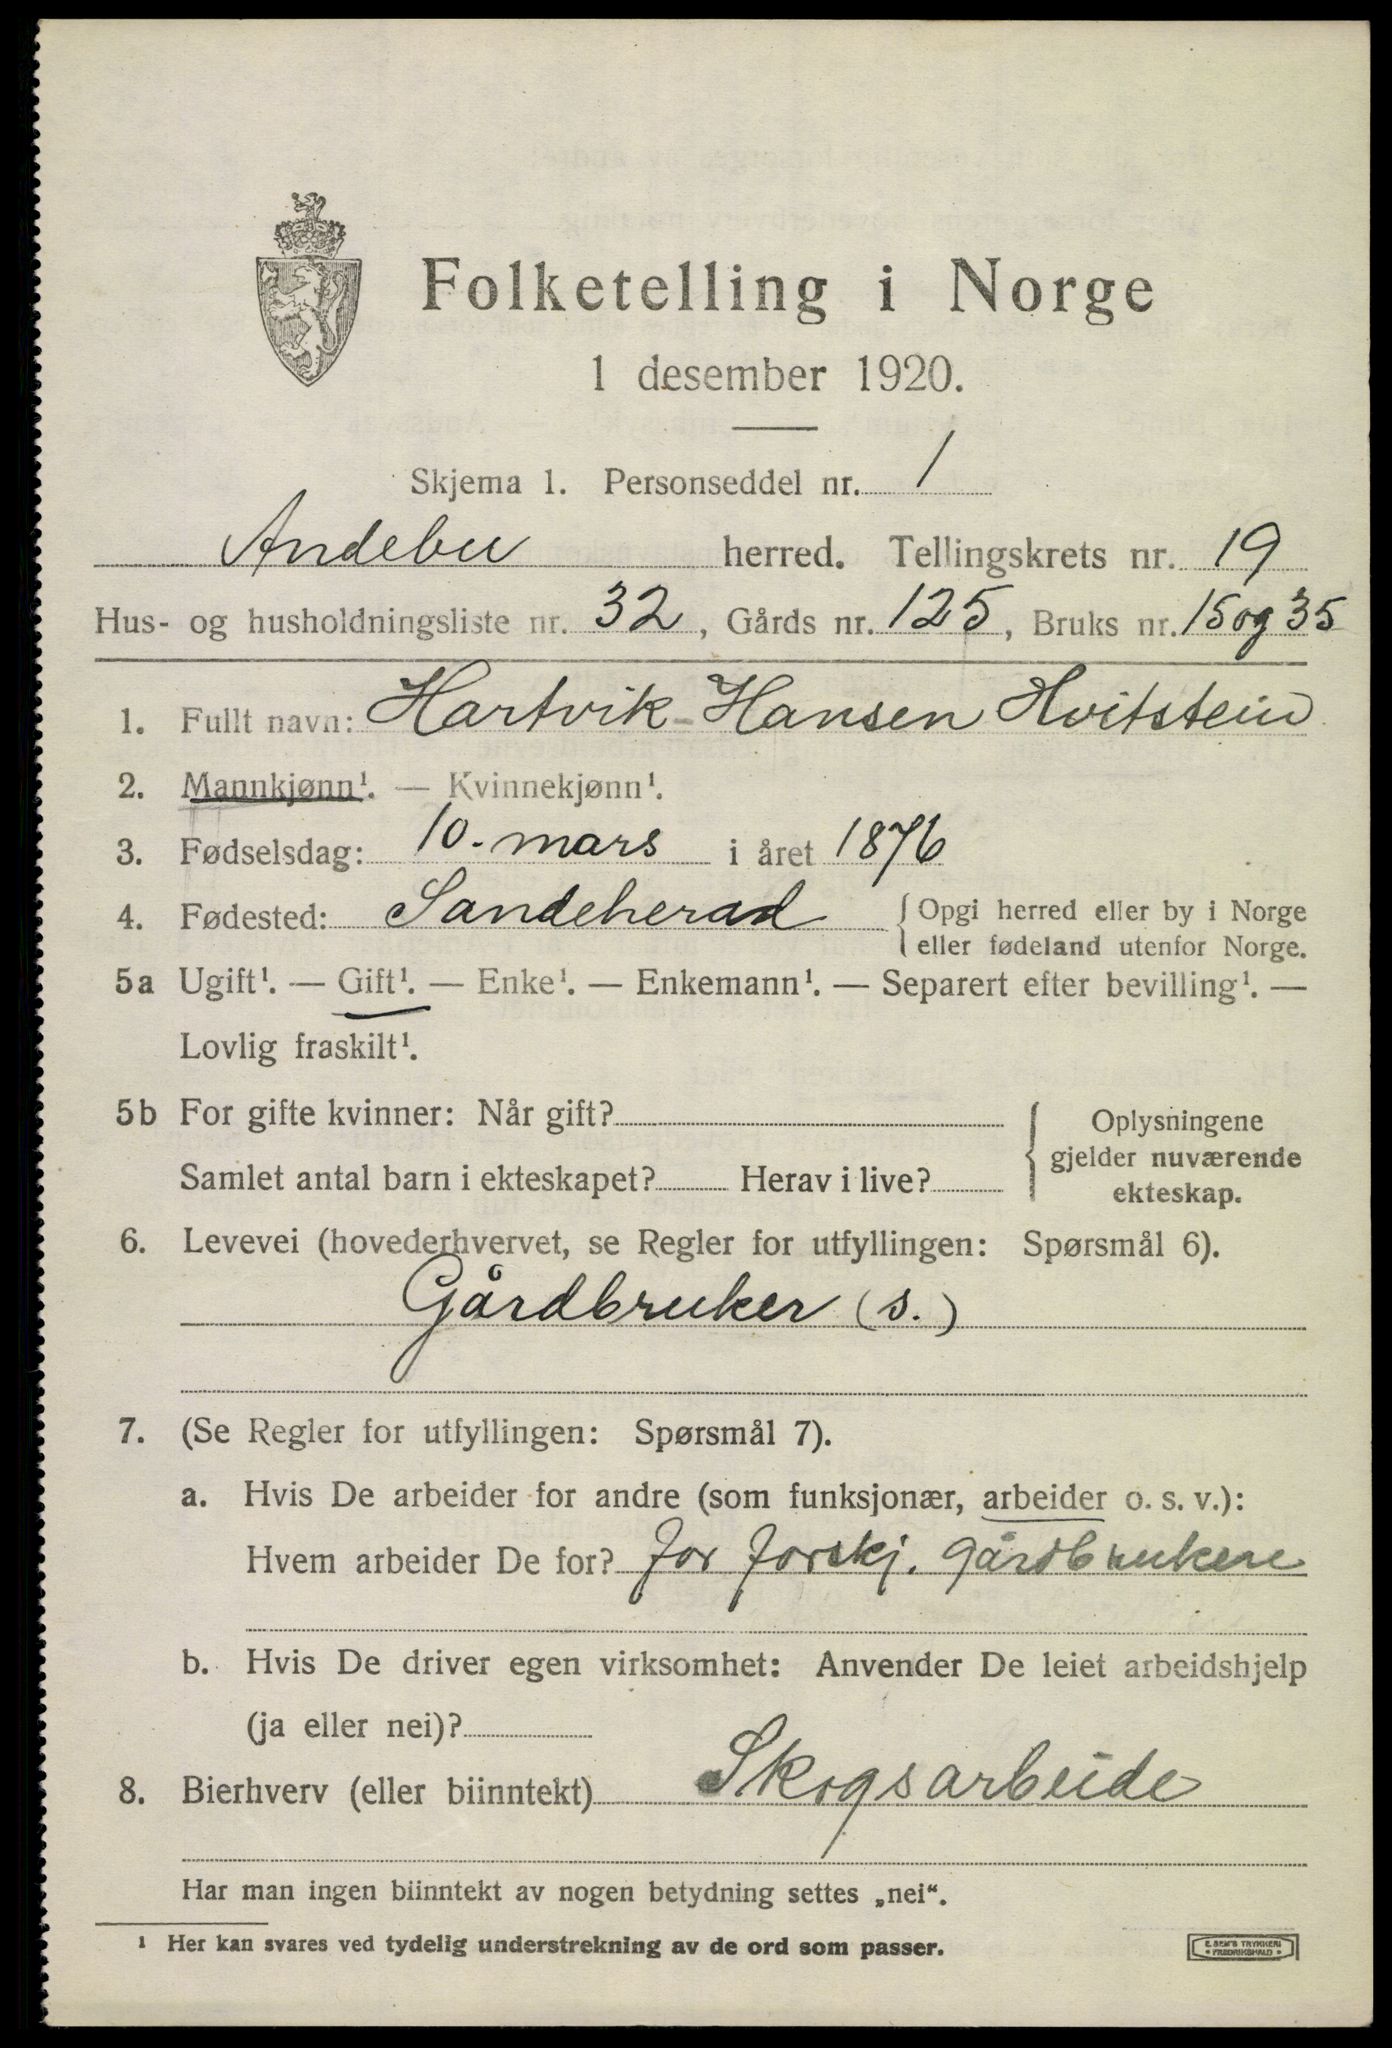 Folketelling i Norge
1 desember 1920.
Skjema 1. Personseddel nr. 1
Andebu herred. Tellingskrets nr. 19
Hus- og husholdningsliste nr. 32, Gårds nr. 125, Bruks nr. 15 og 35
1. Fullt navn: Hartvik Hansen Hvitstein
2. Mannkjønn¹. — Kvinnekjønn¹.
3. Fødselsdag: 10. mars i året 1876
4. Fødested: Sandeherad { Opgi herred eller by i Norge
eller fødeland utenfor Norge.
5a Ugift¹. — Gift¹. — Enke¹. — Enkemann¹. — Separert efter bevilling¹. —
Lovlig fraskilt¹.
5b For gifte kvinner: Når gift? { Oplysningene
gjelder nuværende
Samlet antal barn i ekteskapet? Herav i live? ekteskap.
6. Levevei (hovederhvervet, se Regler for utfyllingen: Spørsmål 6).
Gårdbruker (s.)
7. (Se Regler for utfyllingen: Spørsmål 7).
a. Hvis De arbeider for andre (som funksjonær, arbeider o. s. v.):
Hvem arbeider De for? for forskj. gårdbrukere
b. Hvis De driver egen virksomhet: Anvender De leiet arbeidshjelp
(ja eller nei)?
8. Bierhverv (eller biinntekt) Skogsarbeide
Har man ingen biinntekt av nogen betydning settes „nei“.
¹ Her kan svares ved tydelig understrekning av de ord som passer.
E. SEM'S TRYKKERI
• FREDRIKSHALD •